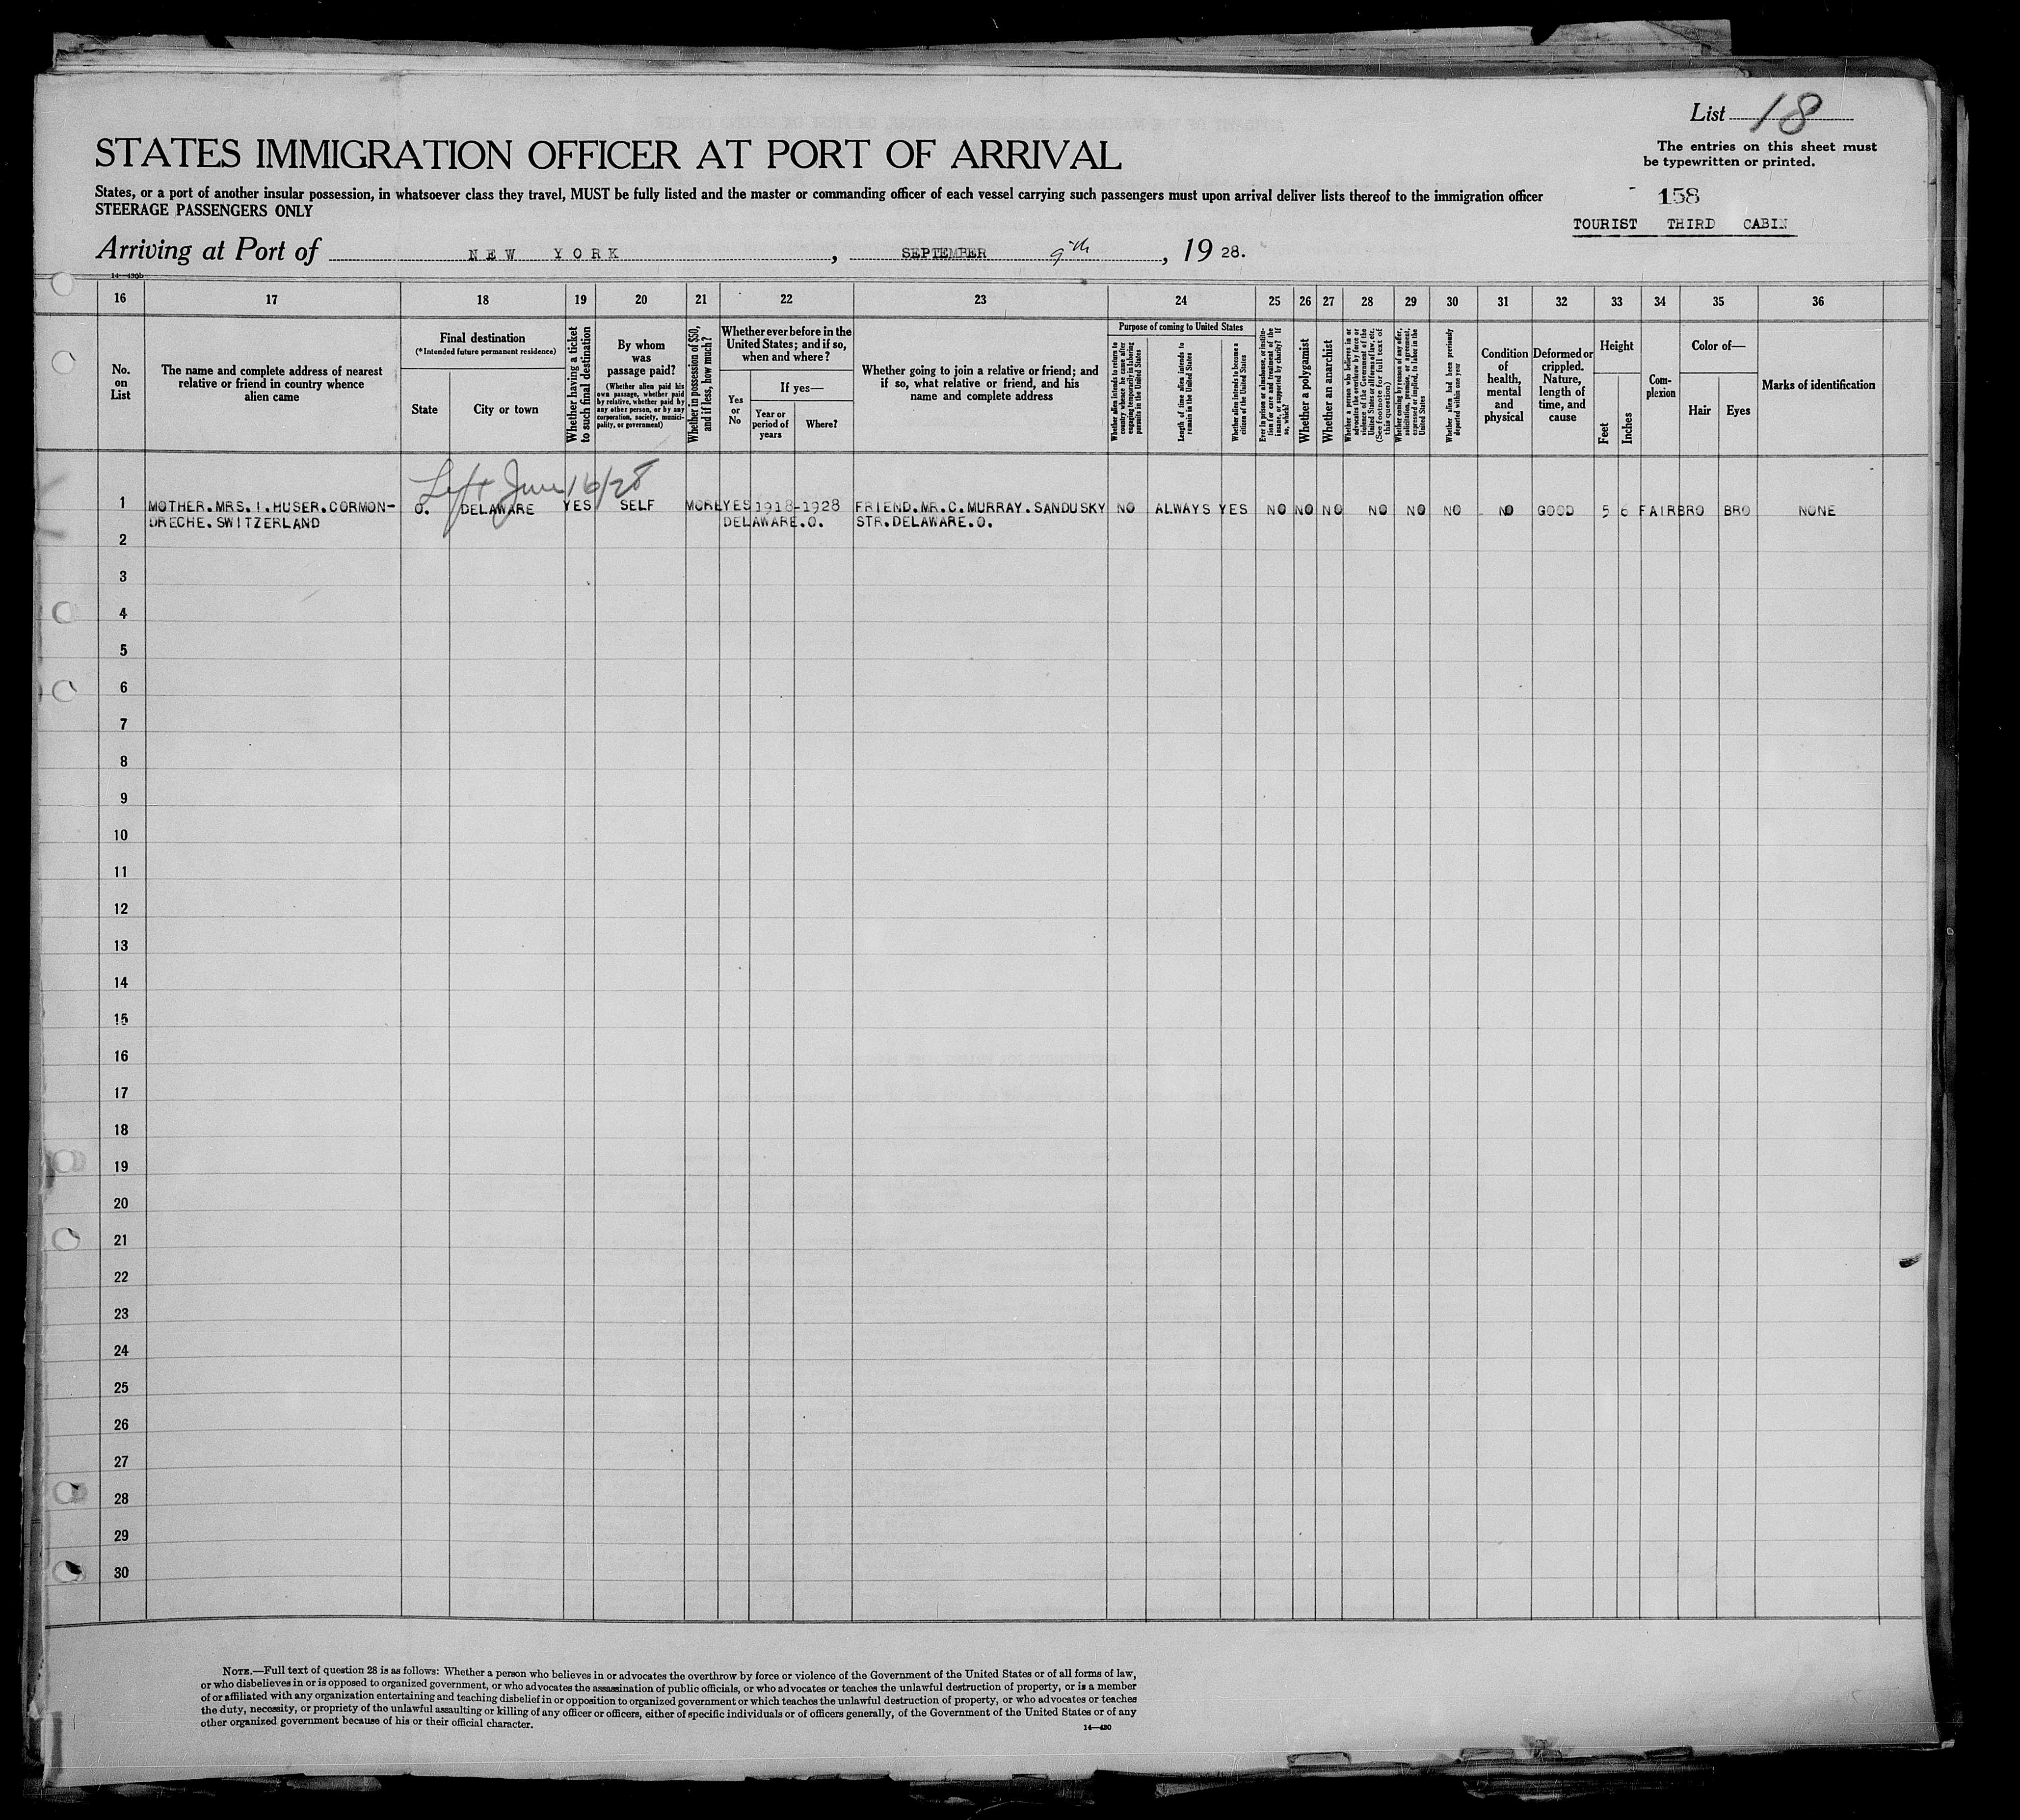 List 18
STATES IMMIGRATION OFFICER AT PORT OF ARRIVAL
The entries on this sheet must
be typewritten or printed.
States, or a port of another insular possession, in whatsoever class they travel, MUST be fully listed and the master or commanding officer of each vessel carrying such passengers must upon arrival deliver lists thereof to the immigration officer
STEERAGE PASSENGERS ONLY
158
TOURIST THIRD CABIN
Arriving at Port of NEW YORK, SEPTEMBER 9th, 1928.
14—430b
16 17 18 19 20 21 22 23 24 25 26 27 28 29 30 31 32 33 34 35 36
No.
on
List
The name and complete address of nearest
relative or friend in country whence
alien came
Final destination
(*Intended future permanent residence)
State
City or town
Whether having a ticket
to such final destination
By whom
was
passage paid?
(Whether alien paid his
own passage, whether paid
by relative, whether paid by
any other person, or by any
corporation, society, munici-
pality, or government)
Whether in possession of $50,
and if less, how much?
Whether ever before in the
United States; and if so,
when and where?
Yes
or
No
If yes—
Year or
period of
years
Where?
Whether going to join a relative or friend; and
if so, what relative or friend, and his
name and complete address
Purpose of coming to United States
Whether alien intends to return to
country whence he came after
engaging temporarily in laboring
pursuits in the United States
Length of time alien intends to
remain in the United States
Whether alien intends to become a
citizen of the United States
Ever in prison or almshouse, or institu-
tion for care and treatment of the
insane, or supported by charity? If
so, which?
Whether a polygamist
Whether an anarchist
Whether a person who believes in or
advocates the overthrow by force or
violence of the Government of the
United States or all forms of law, etc.
(See footnote for full text of
this question)
Whether coming by reason of any offer,
solicitation, promise, or agreement,
expressed or implied, to labor in the
United States
Whether alien had been previously
deported within one year
Condition
of
health,
mental
and
physical
Deformed or
crippled.
Nature,
length of
time, and
cause
Height
Feet
Inches
Com-
plexion
Color of—
Hair
Eyes
Marks of identification
Left June 16/28
1 MOTHER.MRS.I.HUSER.CORMON- O. DELAWARE YES SELF MORE YES 1918-1928 FRIEND.MR.C.MURRAY.SANDUSKY NO ALWAYS YES NO NO NO NO NO NO NO GOOD 5 6 FAIR BRO BRO NONE
DRECHE.SWITZERLAND DELAWARE.O. STR.DELAWARE.O.
2
3
4
5
6
7
8
9
10
11
12
13
14
15
16
17
18
19
20
21
22
23
24
25
26
27
28
29
30
NOTE.—Full text of question 28 is as follows: Whether a person who believes in or advocates the overthrow by force or violence of the Government of the United States or of all forms of law,
or who disbelieves in or is opposed to organized government, or who advocates the assassination of public officials, or who advocates or teaches the unlawful destruction of property, or is a member
of or affiliated with any organization entertaining and teaching disbelief in or opposition to organized government or which teaches the unlawful destruction of property, or who advocates or teaches
the duty, necessity, or propriety of the unlawful assaulting or killing of any officer or officers, either of specific individuals or of officers generally, of the Government of the United States or of any
other organized government because of his or their official character.
14—430